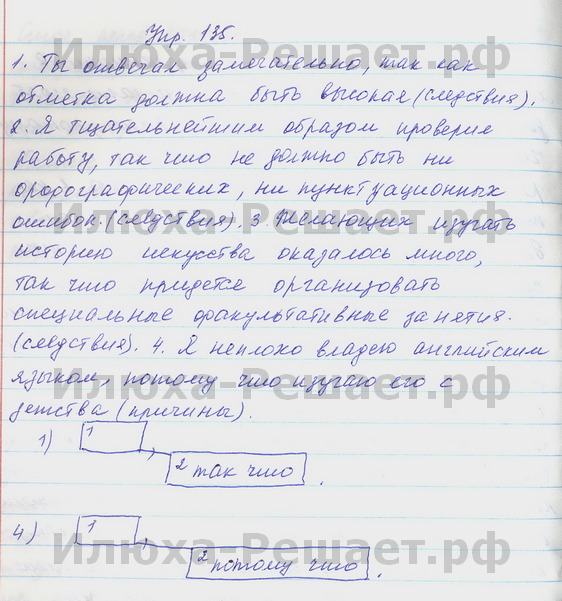 Упр. 135.
1. Ты отвечал замечательно, так как
отметка должна быть высокая (следствия).
2. Я тщательнейшим образом проверил
работу, так что не должно быть ни
орфографических, ни пунктуационных
ошибок. (следствия). 3. Желающих изучать
историю искусства оказалось много,
так что придется организовать
специальные факультативные занятия.
(следствия). 4. Я неплохо владею английским
языком, потому что изучаю его с
детства (причины).
1) 1 ,
2 так что .
4) 1 ,
2 потому что .
Илюха-Решает.рф
Илюха-Решает.рф
Илюха-Решает.рф
Илюха-Решает.рф